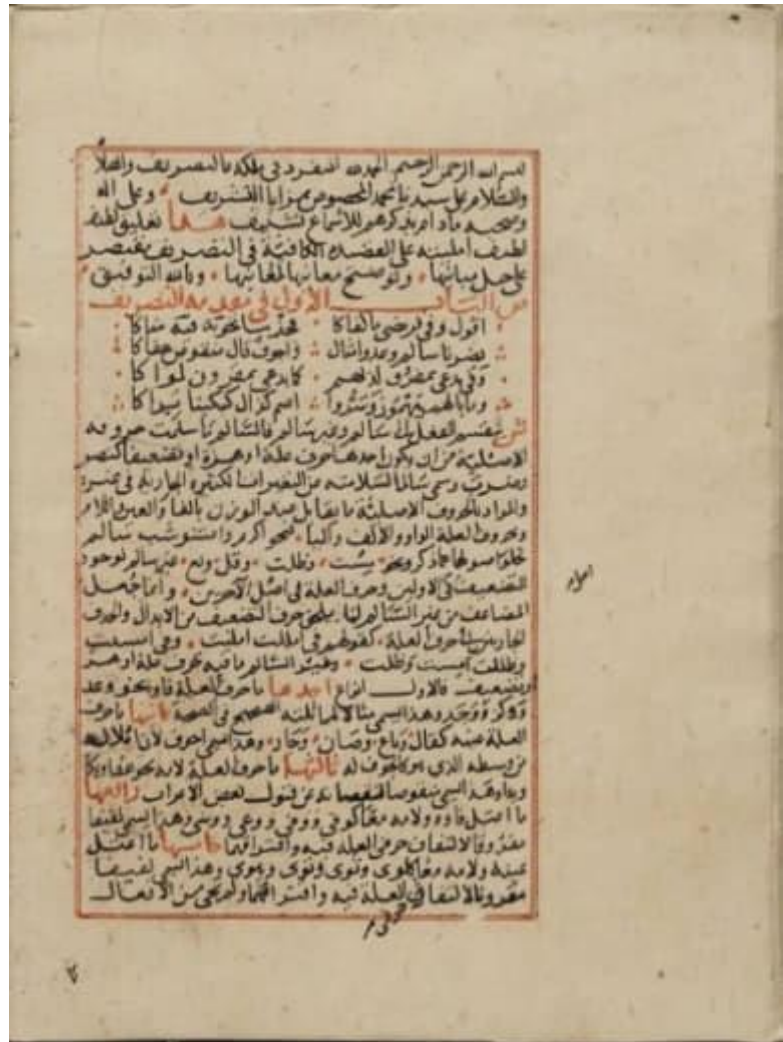 بسم الله الرحمن الرحيم الحمد لله المنفرد في ملكه بالتصريف والصلاة
والسلام على سيدنا محمد المخصوص بمزايا التشريف وعلى اله
وصحبه مادام ذكرهم للاسماع تشنيف هذا تعليق لطيف
لطيف امليته على القصيدة الكافية في التصريف يقتصر
على حل مبانيها وتوضيح معانيها لمعانيها وبالله التوفيق
ص الباب الاول في مقدمة التصريف
اقول وفي
نصرنا سالم وعد واجوف قال منقوص عفا كا
وفي يدعى بمفروق لفيف كما يدعى بمقرون لوا كا
وبابا
ش ينقسم الفعل الى سالم وغير سالم فالسالم ما سلمت حروفه
الاصلية من ان يكون احدها حرف علة او همزة او تضعيف كنصر
وضرب وسمى سالما لسلامته من التغيرات الكثيرة الجارية في غيره
والمراد بالحروف الاصلية ما يقابل عند الوزن بالفا والعين واللام
وبحروف العلة الواو والالف واليا فنحو اكرم واعشوشب سالم
لخلو اصولهما مما ذكر ونحو مست وظلت وقل وبع غير سالم لوجود
التضعيف في الاولين وحرف العلة في اصل الاخرين وانما جعل
المضاعف من غير السالم لما يلحق حرف التضعيف من الابدال والحذف
الجاريين في احرف العلة كقولهم في امللت امليت وفي مسست
وظللت مست وظلت وغير السالم ما فيه حرف علة او همز
او تضعيف فالاول انواع احدها ما حرف العلة فاوه نحو وعد
ووكز ووجد وهذا يسمى مثالا لمماثلته الصحيح في الصحة ثانيها ما حرف
العلة عينه كقال وباع وصان وحار وهذا يسمى اجوف لان
من وسطه الذي هو كالجوف له ثالثها ما حرف العلة لامه نحو عفاوكا
وهذا يسمى منقوصا لنقصانه عن قبول بعض الاعراب رابعها
ما اعتل فاوه ولامه معا كوفى ووقى ووعى ووشى وهذا يسمى لفيفا
مفروقا لالتفاف حرفي العلة فيه وافتراقهما خامسها ما اعتل
عينه ولامه معا كلوى ونوى وهذا يسمى لفيفا
مقرونا لالتفاف العلة فيه واقترانهما ولم يجي من الافعال